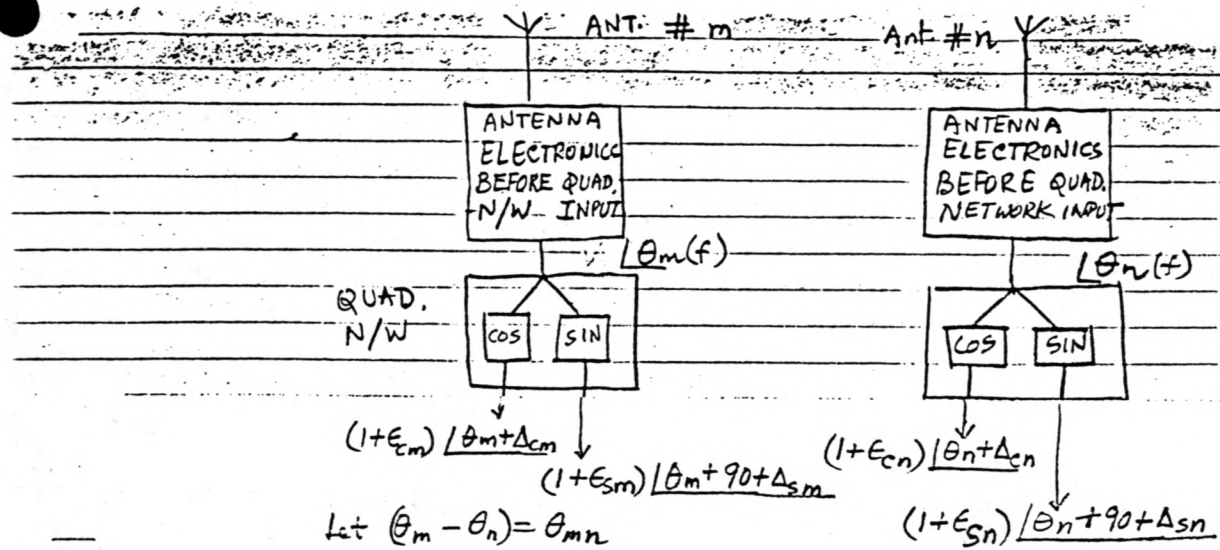 ANT. # m
Ant #n
ANTENNA
ELECTRONICS
BEFORE QUAD.
N/W INPUT
ANTENNA
ELECTRONICS
BEFORE QUAD.
NETWORK INPUT
∠θm(f)
∠θn(f)
QUAD.
N/W
COS
SIN
COS
SIN
(1+ϵcm) ∠θm+Δcm
(1+ϵsm) ∠θm+90+Δsm
(1+ϵcn) ∠θn+Δcn
(1+ϵsn) ∠θn+90+Δsn
Let (θm-θn)= θmn